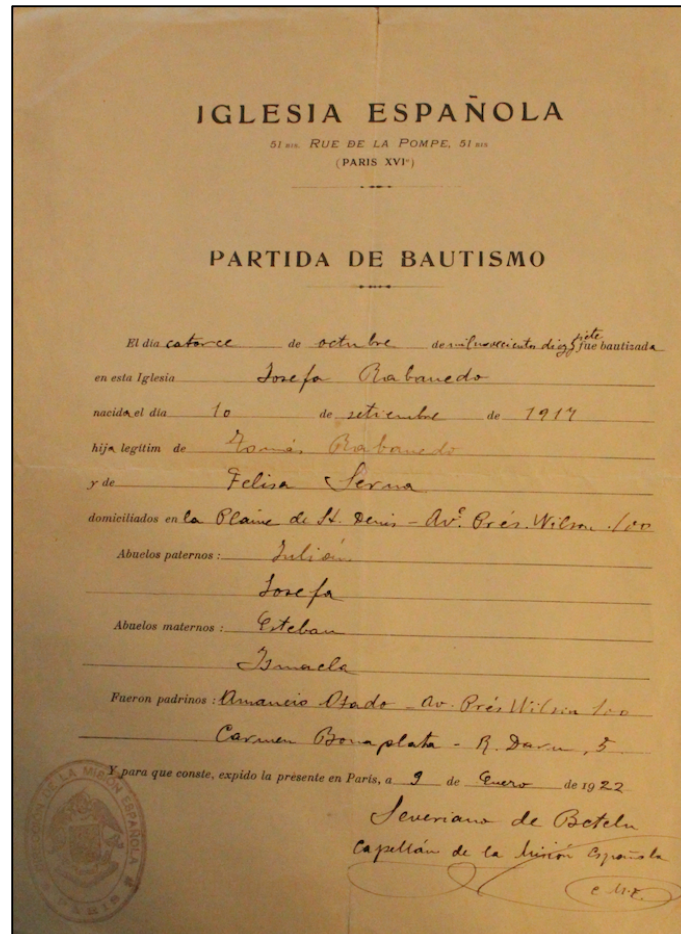 IGLESIA ESPAÑOLA
51 BIS. RUE DE LA POMPE, 51 BIS
(PARIS XVIe)
PARTIDA DE BAUTISMO
El día catorce de octubre de milnovecientos diez y siete fue bautizada
en esta Iglesia Josefa Rabanedo
nacida el día 10 de setiembre de 1917
hija legítim de Tomás Rabanedo
y de Felisa Serna
domiciliados en la Plaine de St. Denis - Avᵉ. Prés. Wilson 100
Abuelos paternos: Julián
Josefa
Abuelos maternos: Esteban
Ismaela
Fueron padrinos: Amancio Osado - Av. Prés Wilson 100
Carmen Bonaplata - R. Daru, 5
Y para que conste, expido la presente en París, a 9 de Enero de 1922
Severiano de Betelu
Capellán de la Misión Española
C.M.F.
DIRECCION DE LA MISIÓN ESPAÑOLA
PARIS